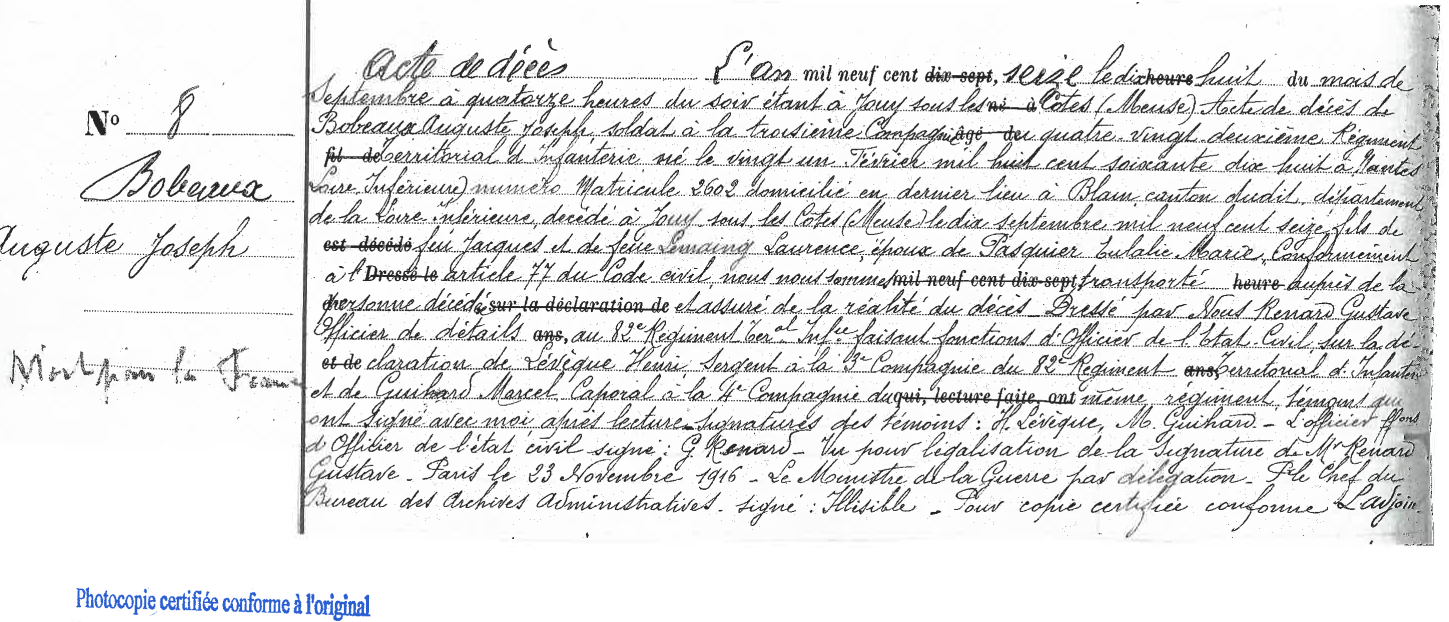 Nº 8
Bobeaux
Auguste Joseph
Mort pour la France
Acte de décès L'an mil neuf cent dix-sept, seize le dix heures huit du mois de
Septembre à quatorze heures du soir étant à Jouy sous les né à Côtes (Meuse) Acte de décès de
Bobeaux Auguste Joseph, soldat à la troisième Compagnie âgé de du quatre vingt deuxième Régiment
fil de Territorial d'Infanterie né le vingt un Février mil huit cent soixante dix huit à Nantes
Loire Inférieure) numéro Matricule 2602 domicilié en dernier lieu à Blain canton dudit, département
de la Loire Inférieure, décédé à Jouy sous les Côtes (Meuse) le dix septembre mil neuf cent seize, fils de
est décédé feu Jacques et de feue Lemaing Laurence, époux de Pasquier Eulalie Marie, Conformément
à l' Dressé le article 77 du Code civil, nous nous sommes mil neuf cent dix-sept, transporté heure auprès de la
personne décédée sur la déclaration de et assuré de la réalité du décès - Dressé par Nous Renard Gustave
Officier de détails ans, au 82e Régiment Ter.al Inf.ie faisant fonctions d'Officier de l'Etat-Civil, sur la dé-
et de claration de Lévêque Henri Sergent à la 3e Compagnie du 82e Régiment ans, Territorial d'Infanterie
et de Guihard Marcel, Caporal à la 4e Compagnie du qui, lecture faite, ont même régiment, témoins qui
ont signé avec moi après lecture - Signatures des témoins : H. Lévêque, M. Guihard. - L'officier ffons
d'Officier de l'état civil signé : G Renard - Vu pour légalisation de la Signature de Mr Renard
Gustave - Paris le 23 Novembre 1916 - Le Ministre de la Guerre par délégation - P. le Chef du
Bureau des Archives Administratives - signé : Illisible - Pour copie certifiée conforme L'adjoin
Photocopie certifiée conforme à l'original